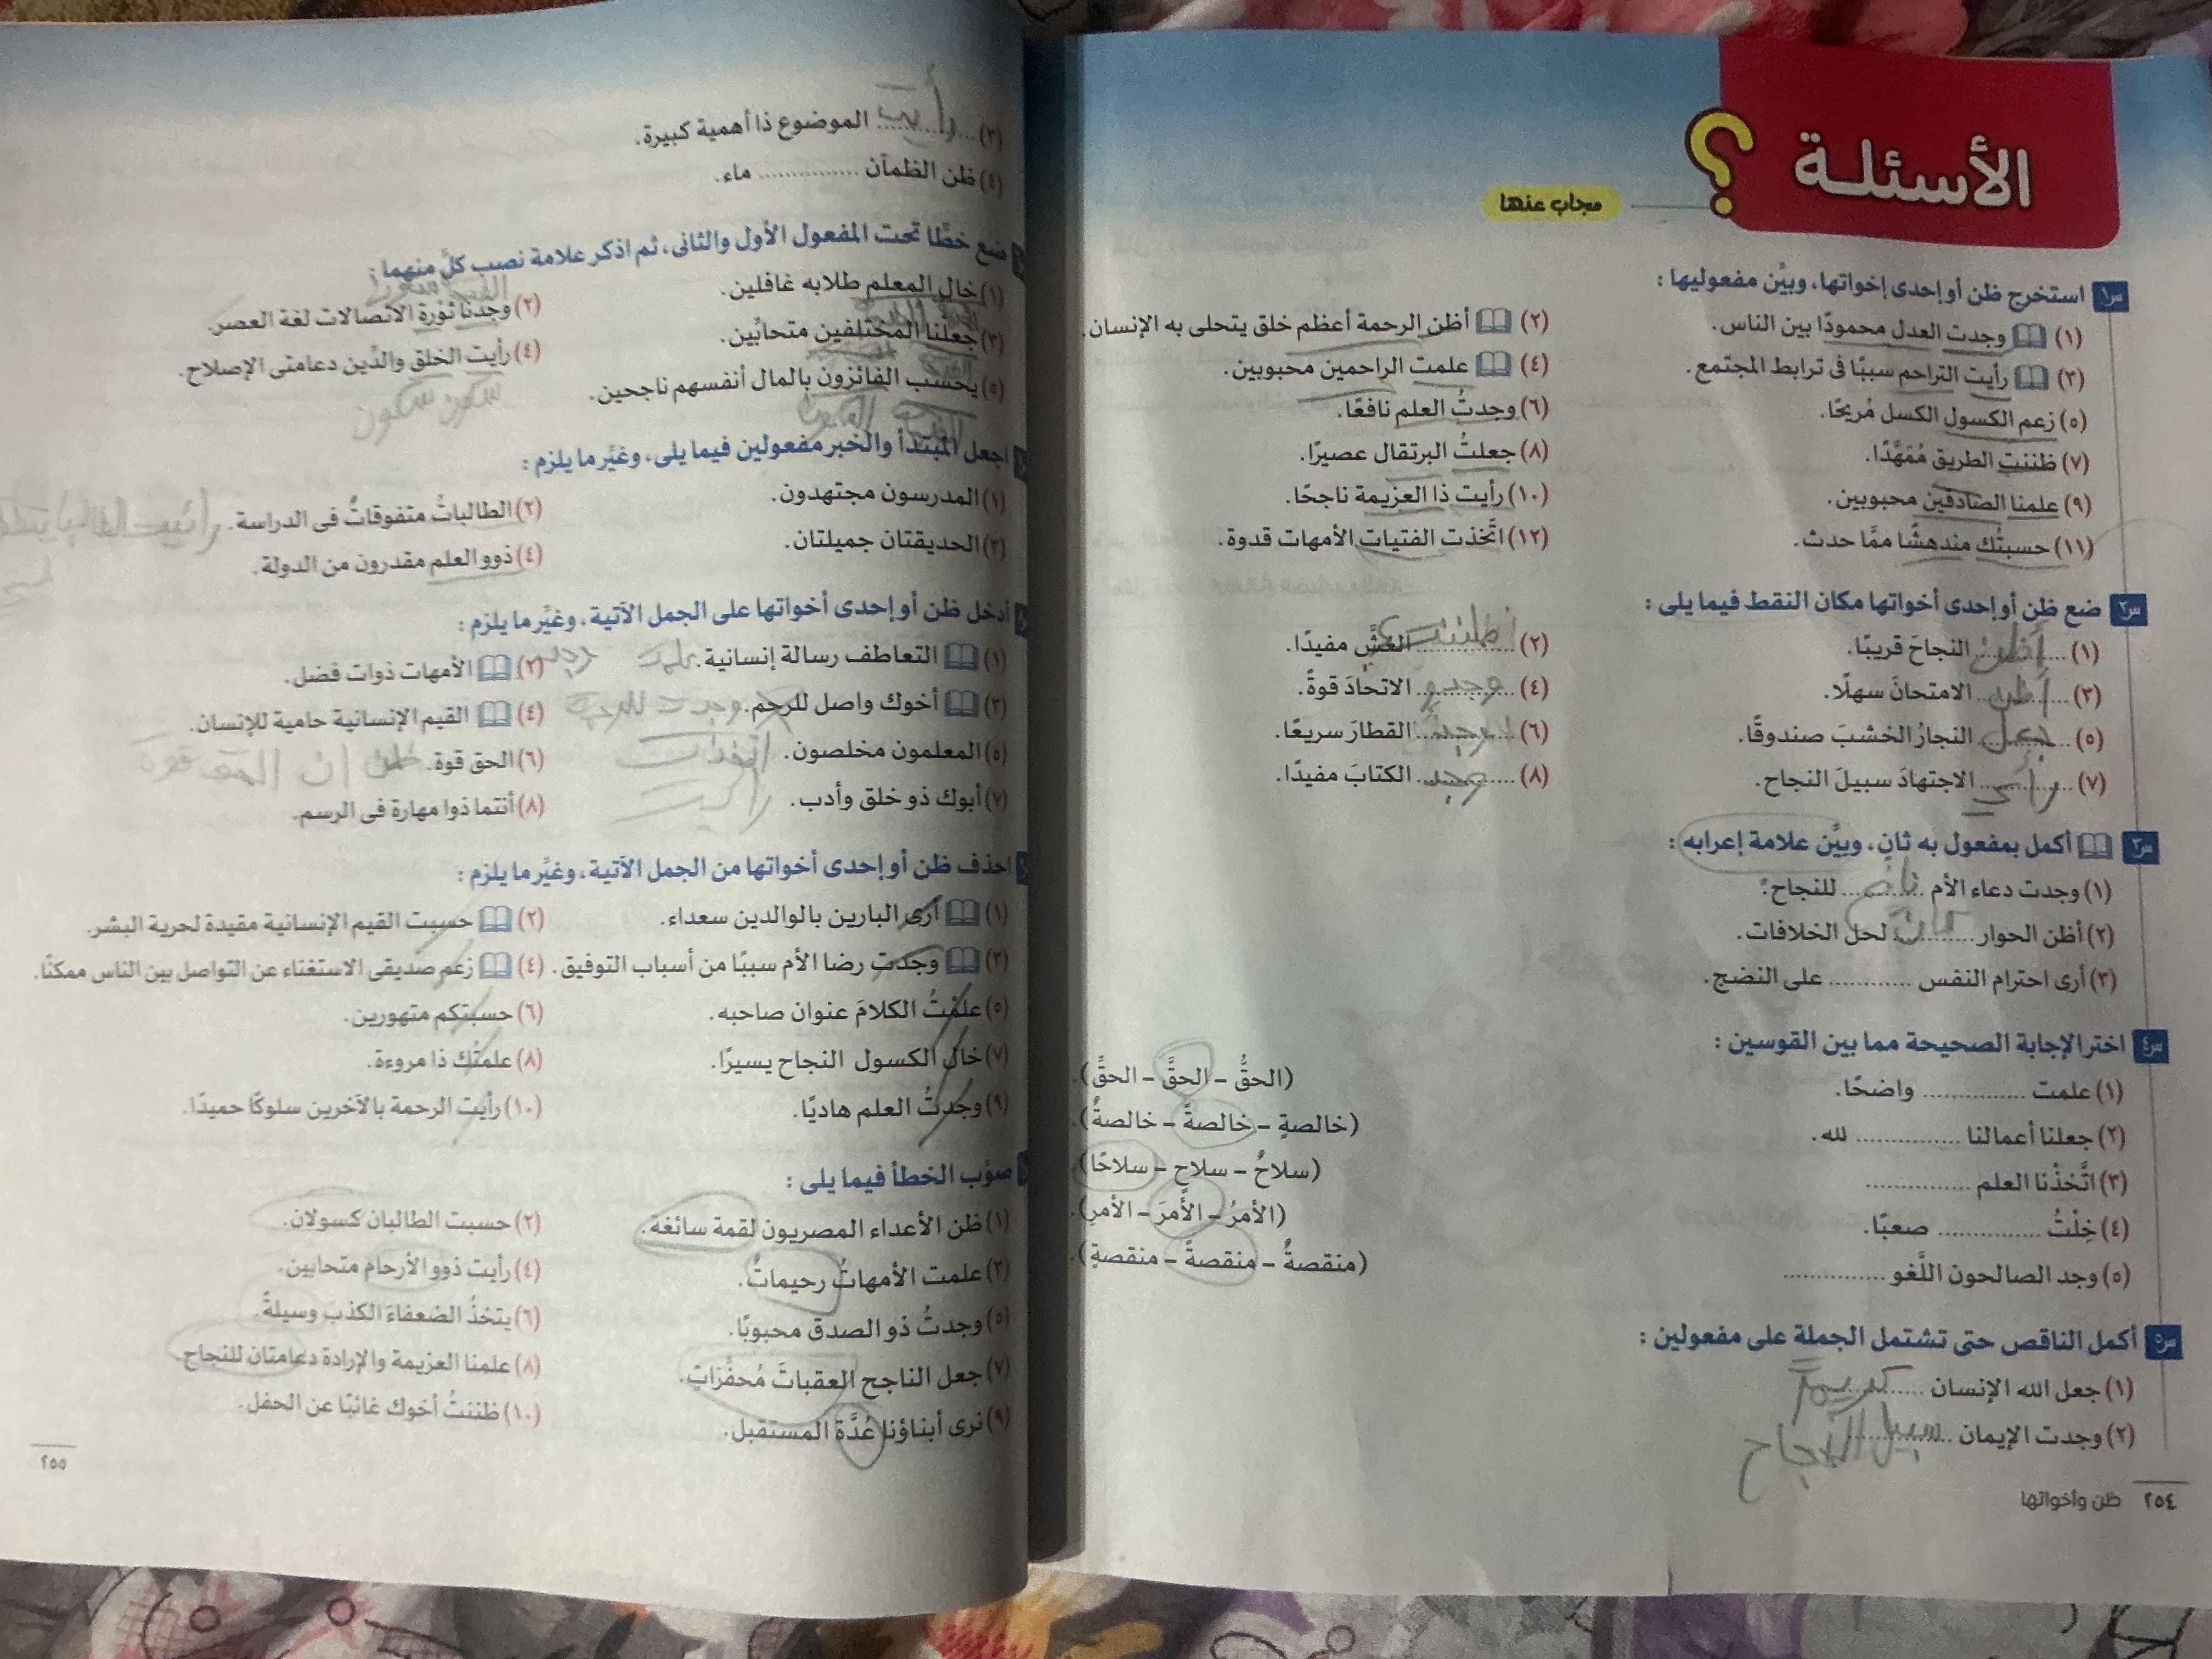 الأسئلة
مجاب عنها
س١ استخرج ظن أو إحدى إخواتها، وبيِّن مفعوليها :
(١) وجدت العدل محمودًا بين الناس.
(٢) أظن الرحمة أعظم خلق يتحلى به الإنسان.
(٣) رأيت التراحم سببًا فى ترابط المجتمع.
(٤) علمت الراحمين محبوبين.
(٥) زعم الكسول الكسل مُريحًا.
(٦) وجدتُ العلم نافعًا.
(٧) ظننت الطريق مُمَهَّدًا.
(٨) جعلتُ البرتقال عصيرًا.
(٩) علمنا الصادقين محبوبين.
(١٠) رأيت ذا العزيمة ناجحًا.
(١١) حسبتُك مندهشًا ممَّا حدث.
(١٢) اتَّخذت الفتيات الأمهات قدوة.
س٢ ضع ظن أو إحدى أخواتها مكان النقط فيما يلى :
(١) أظن النجاحَ قريبًا.
(٢) ............ الغشَّ مفيدًا.
(٣) أظن الامتحانَ سهلًا.
(٤) وجدو الاتحادَ قوةً.
(٥) جعل النجارُ الخشبَ صندوقًا.
(٦) وجد القطارَ سريعًا.
(٧) رأى الاجتهادَ سبيلَ النجاح.
(٨) وجد الكتابَ مفيدًا.
س٣ أكمل بمفعول به ثانٍ، وبيِّن علامة إعرابه :
(١) وجدت دعاء الأم ............ للنجاح.
(٢) أظن الحوار ............ لحل الخلافات.
(٣) أرى احترام النفس ............ على النضج.
س٤ اختر الإجابة الصحيحة مما بين القوسين :
(١) علمت ............ واضحًا. (الحقُّ – الحقَّ – الحقِّ).
(٢) جعلنا أعمالنا ............ لله. (خالصةٍ – خالصةً – خالصةٌ).
(٣) اتَّخذْنا العلم ............ (سلاحٌ – سلاحٍ – سلاحًا).
(٤) خِلْتُ ............ صعبًا. (الأمرُ – الأمرَ – الأمرِ).
(٥) وجد الصالحون اللَّغو ............ (منقصةٌ – منقصةً – منقصةٍ).
س٥ أكمل الناقص حتى تشتمل الجملة على مفعولين :
(١) جعل الله الإنسان كريم
(٢) وجدت الإيمان سبيل النجاح
٢٥٤ ظن وأخواتها
(٣) رأيت الموضوع ذا أهمية كبيرة.
(٤) ظن الظمآن ............ ماء.
ضع خطًّا تحت المفعول الأول والثانى، ثم اذكر علامة نصب كلٍّ منهما :
(١) خال المعلم طلابه غافلين.
(٢) وجدنا ثورة الاتصالات لغة العصر.
(٣) جعلنا المختلفين متحابِّين.
(٤) رأيت الخلق والدِّين دعامتى الإصلاح.
(٥) يحسب الفائزون بالمال أنفسهم ناجحين.
سكون سكون
اجعل المبتدأ والخبر مفعولين فيما يلى، وغيِّر ما يلزم :
(١) المدرسون مجتهدون.
(٢) الطالباتُ متفوقاتٌ فى الدراسة.
(٣) الحديقتان جميلتان.
(٤) ذوو العلم مقدرون من الدولة.
أدخل ظن أو إحدى أخواتها على الجمل الآتية، وغيِّر ما يلزم :
(١) التعاطف رسالة إنسانية. علمت
(٢) الأمهات ذوات فضل. وجد
(٣) أخوك واصل للرحم. وجدت
(٤) القيم الإنسانية حامية للإنسان.
(٥) المعلمون مخلصون. اتخذت
(٦) الحق قوة. ظن ان الحق قوة
(٧) أبوك ذو خلق وأدب. رأيت
(٨) أنتما ذوا مهارة فى الرسم.
احذف ظن أو إحدى أخواتها من الجمل الآتية، وغيِّر ما يلزم :
(١) أرى البارين بالوالدين سعداء.
(٢) حسبت القيم الإنسانية مقيدة لحرية البشر.
(٣) وجدت رضا الأم سببًا من أسباب التوفيق.
(٤) زعم صديقى الاستغناء عن التواصل بين الناس ممكنًا.
(٥) علمتُ الكلامَ عنوان صاحبه.
(٦) حسبتكم متهورين.
(٧) خال الكسول النجاح يسيرًا.
(٨) علمتُك ذا مروءة.
(٩) وجدتُ العلم هاديًا.
(١٠) رأيت الرحمة بالآخرين سلوكًا حميدًا.
صوِّب الخطأ فيما يلى :
(١) ظن الأعداء المصريون لقمة سائغة.
(٢) حسبت الطالبان كسولان.
(٣) علمت الأمهاتُ رحيماتٌ.
(٤) رأيت ذوو الأرحام متحابين.
(٥) وجدتُ ذو الصدق محبوبًا.
(٦) يتخذُ الضعفاءَ الكذبَ وسيلةً.
(٧) جعل الناجح العقباتَ مُحفِّزاتٍ.
(٨) علمنا العزيمة والإرادة دعامتان للنجاح.
(٩) نرى أبناؤنا عُدَّة المستقبل.
(١٠) ظننتُ أخوك غائبًا عن الحفل.
٢٥٥